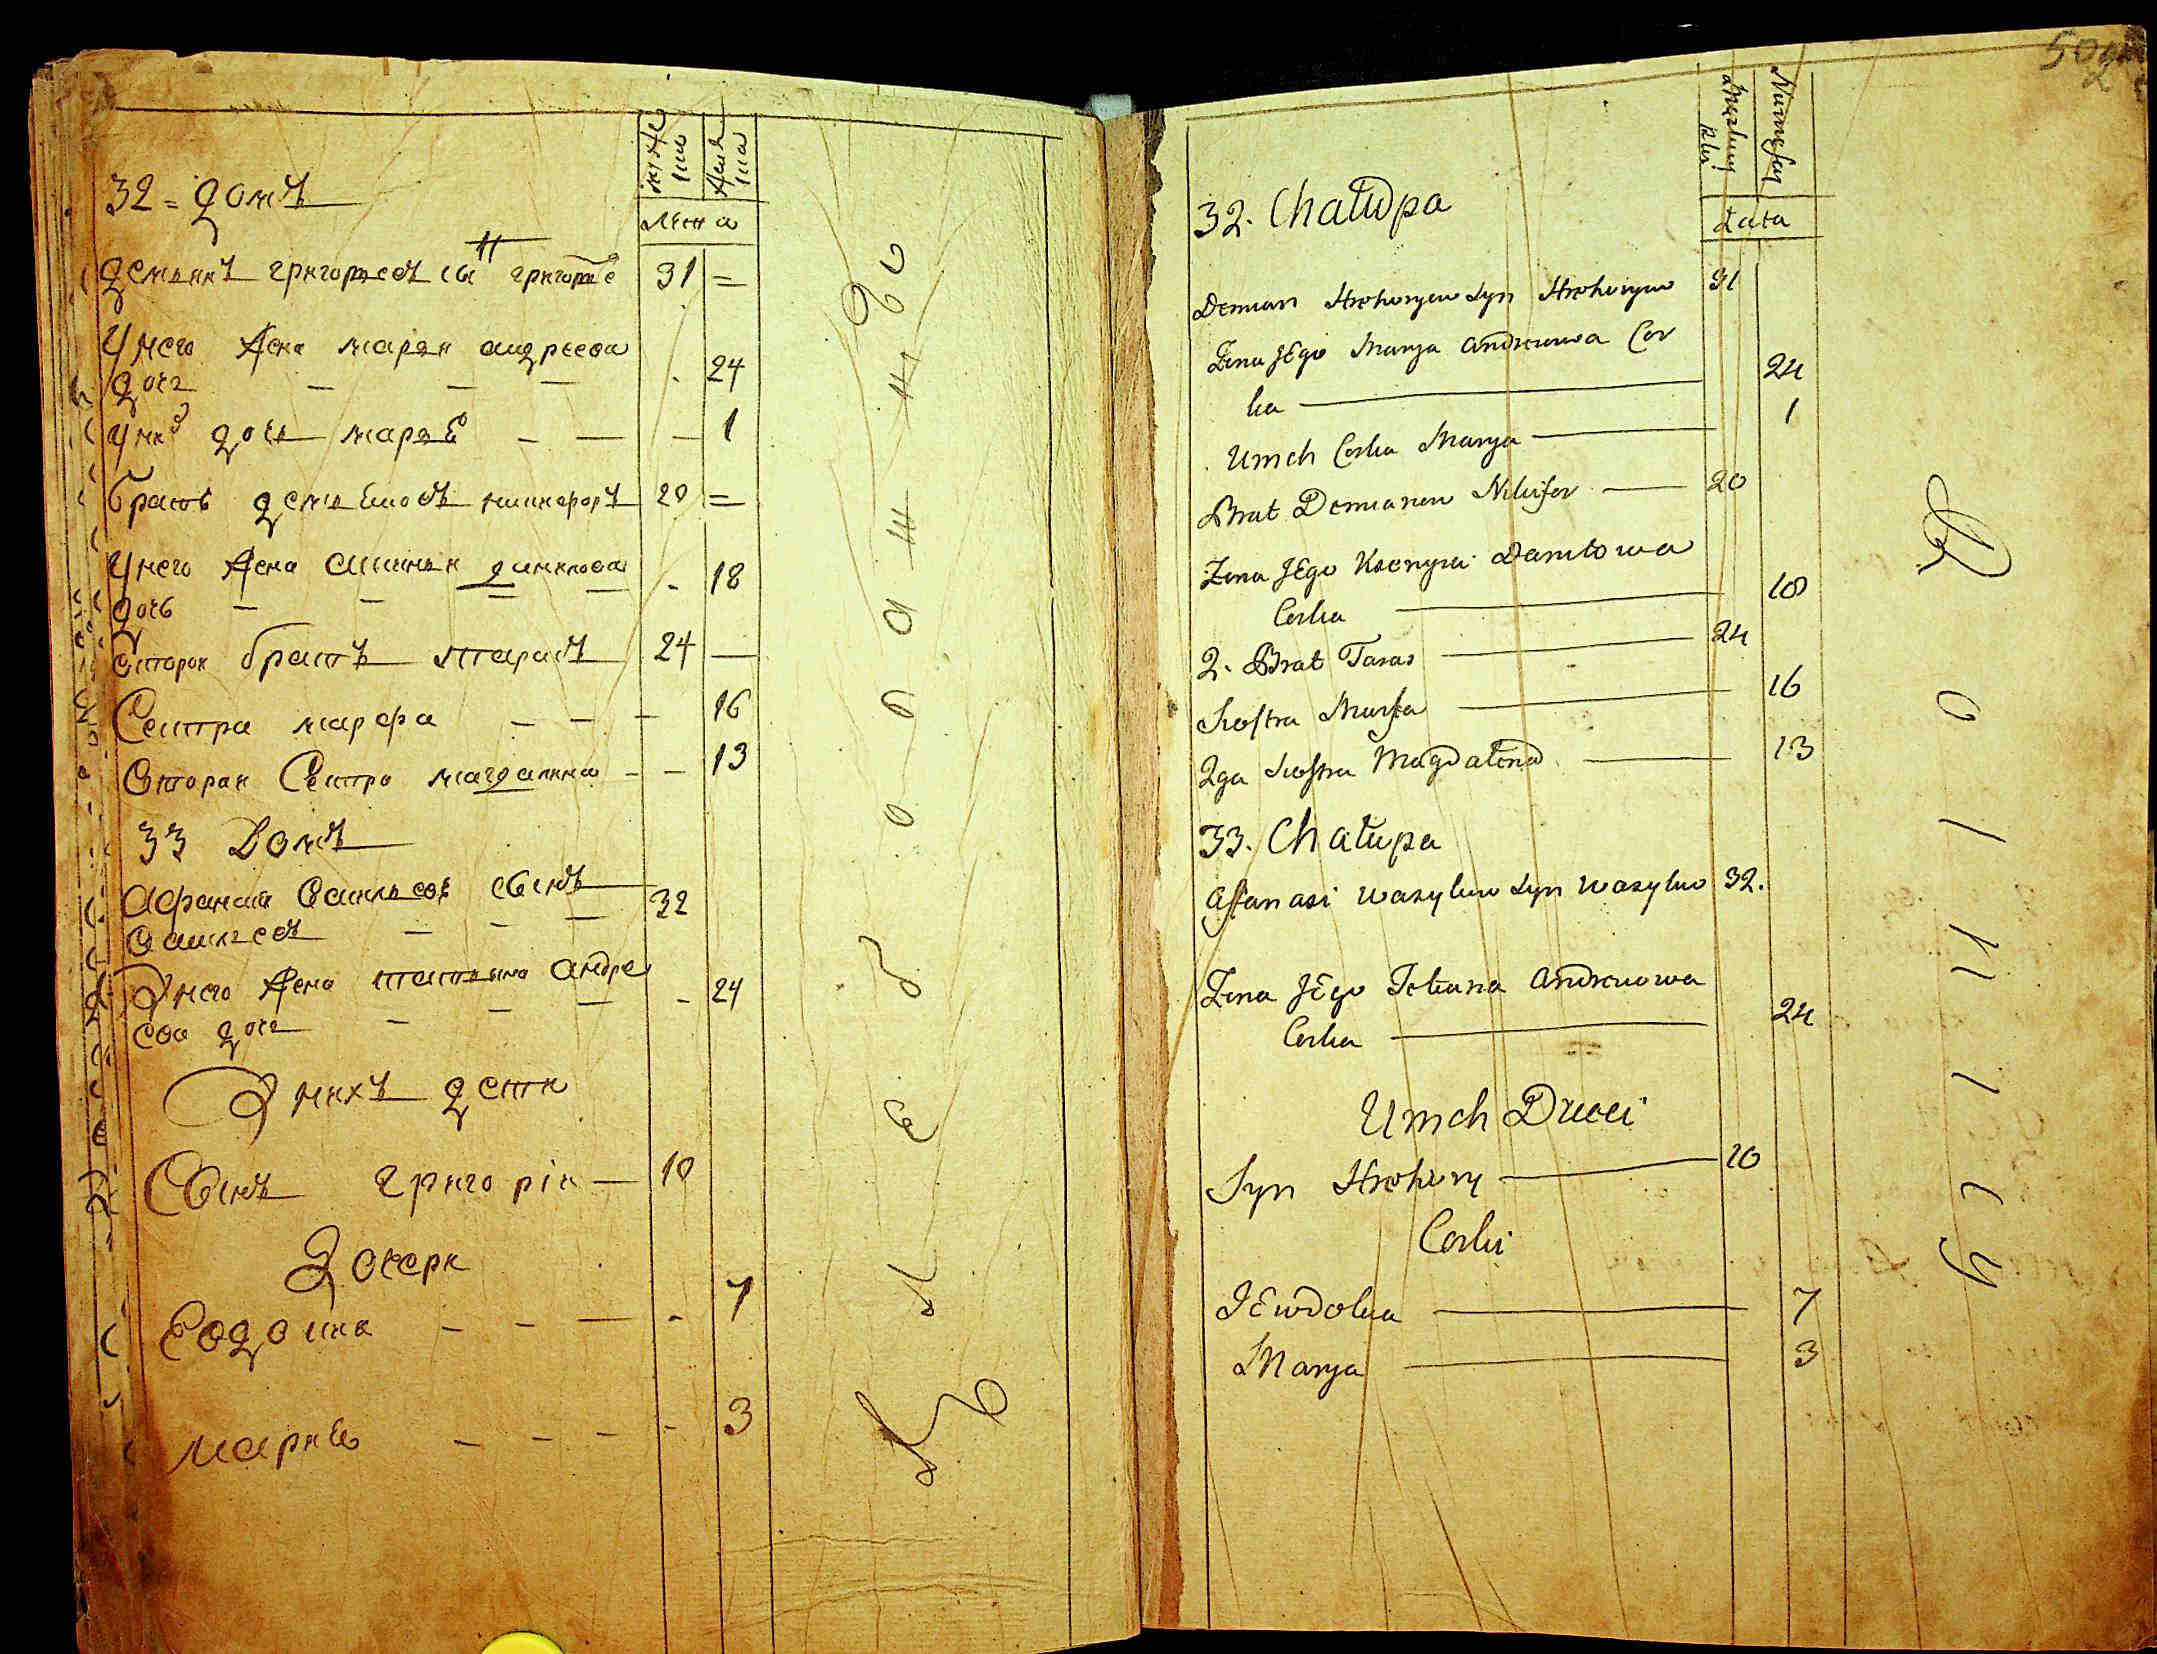 32 = домъ
лета
демянъ григорьевъ сы н григорьев 31 =
У него жена марья андреева
дочь — — — 24
У них дочь марья — — — 1
братъ демьяновъ никифоръ 20 =
У него жена данилова
дочь — — — — 18
Второи братъ тарасъ 24 —
Сестра марфа — — — 16
Вторая Сестра магдалина — — 13
33 Домъ
Афанасии Васильевъ сынъ 32
Васильевъ — — —
У него жена татьяна андре
ева дочь — — — — 24
У нихъ дети
Сынъ григоріи — 10
Дочери
Евдокия — — — - 7
мария — — — - 3
502
32. Chałupa
Lata
Demian Hrehoryiw Syn Hrehoryiw 31
Zona JEgo Marya Andreiowa Cor
ka — 24
U nich Corka Marya — 1
Brat Demianow Nikifor — 20
Zona JEgo Ksenyia Daniłowa
Corka — 18
2. Brat Taras — 24
Siostra Marfa — 16
2ga Siostra Magdalena — 13
33. Chałupa
Afanasi Wasyluw Syn Wasyluw 32.
Zona JEgo Tetiana Andreiowa
Corka — 24
U nich Dzieci
Syn Hrehory — 10
Corki
JEwdokia — 7
Marya — 3